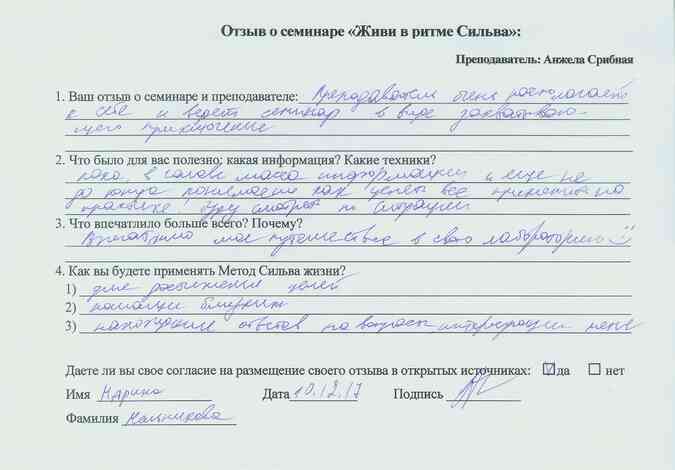 Отзыв о семинаре «Живи в ритме Сильва»:
Преподаватель: Анжела Срибная
1. Ваш отзыв о семинаре и преподавателе: Преподаватель очень располагает
к себе и ведет семинар в виде захватываю-
щего приключения
2. Что было для вас полезно: какая информация? Какие техники?
пока в голове масса информации и еще не
до конца понимаете как успеть все применить на
практике. Буду смотреть по ситуации
3. Что впечатлило больше всего? Почему?
Впечатлило мое путешествие в свою лабораторию
4. Как вы будете применять Метод Сильва жизни?
1) для достижения целей
2) помощи близким
3) нахождение ответов на вопросы интересующие меня
Даете ли вы свое согласие на размещение своего отзыва в открытых источниках: да нет
Имя Марина Дата 10.12.17 Подпись
Фамилия